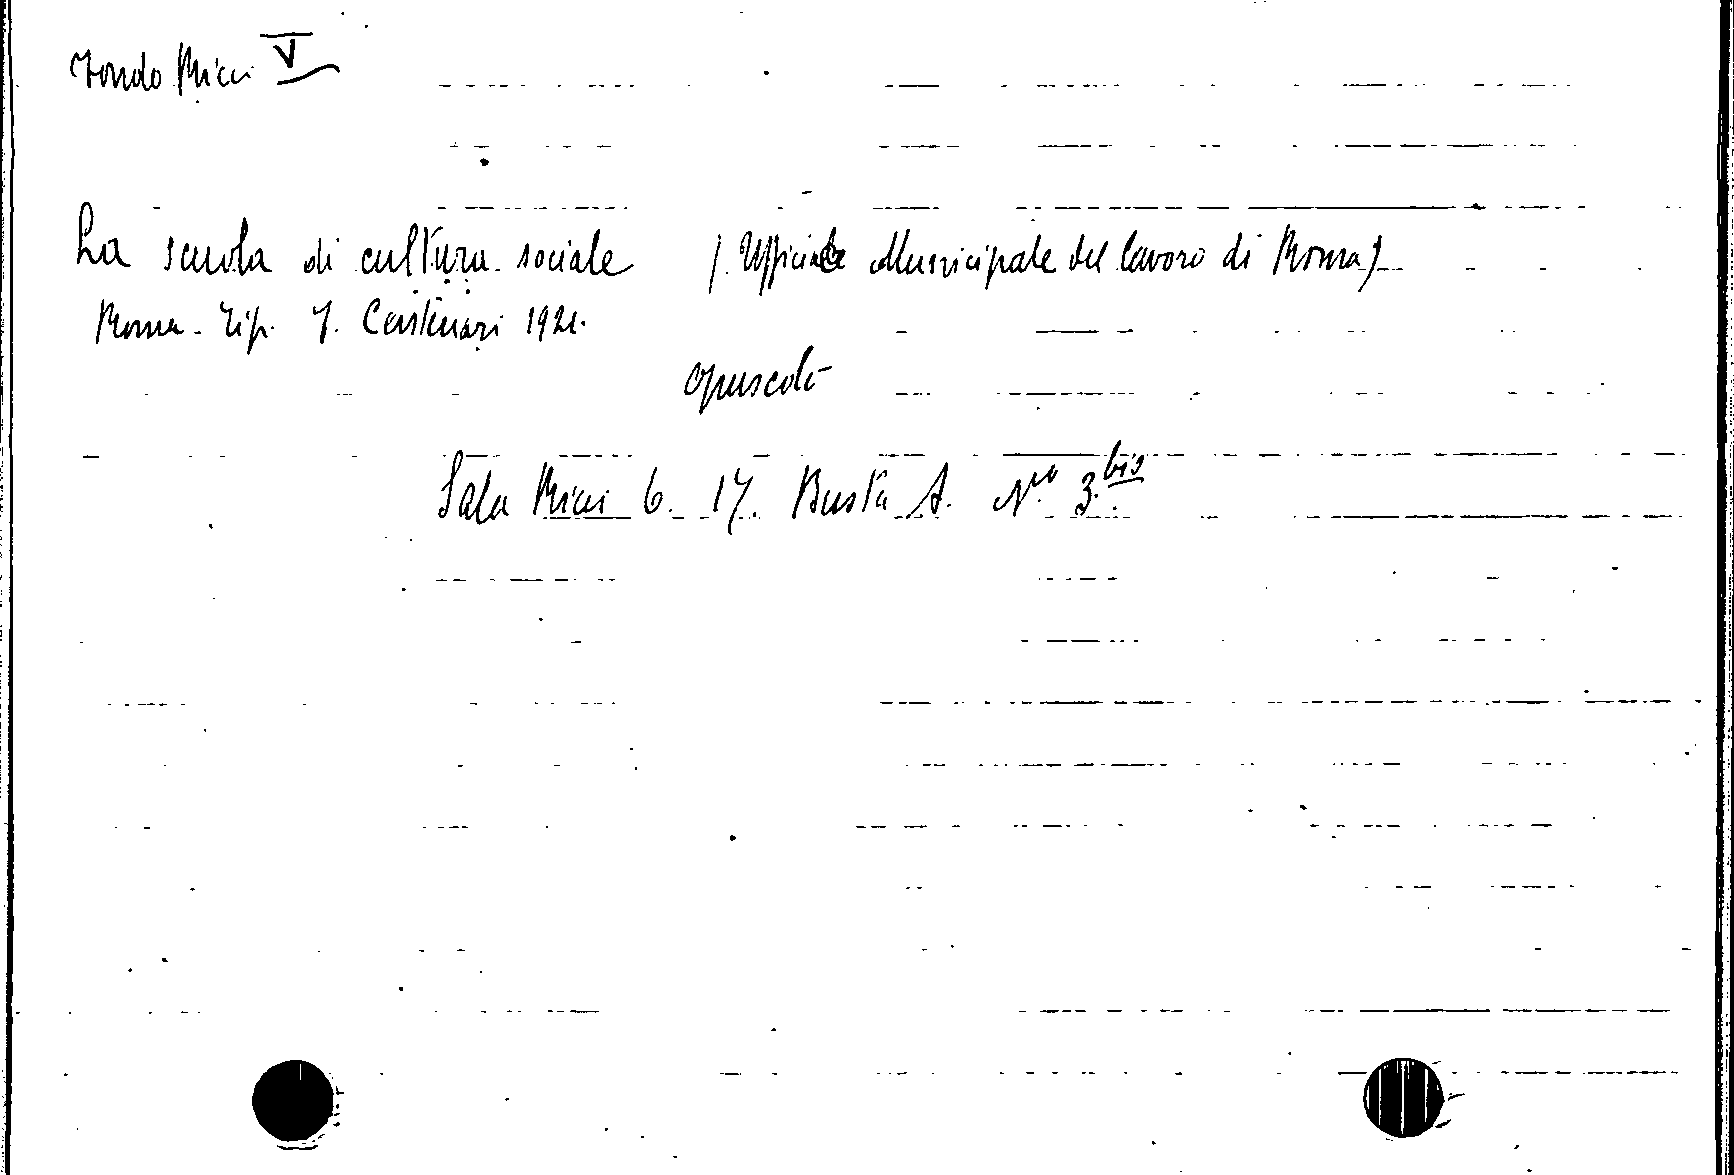 Fondo Ricci V
La scuola di cultura sociale (Ufficiale Municipale del lavoro di Roma)
Roma - Tip. F. Centenari 1921.
opuscolo
Sala Ricci 6. 17. Busta A. No 3.bis